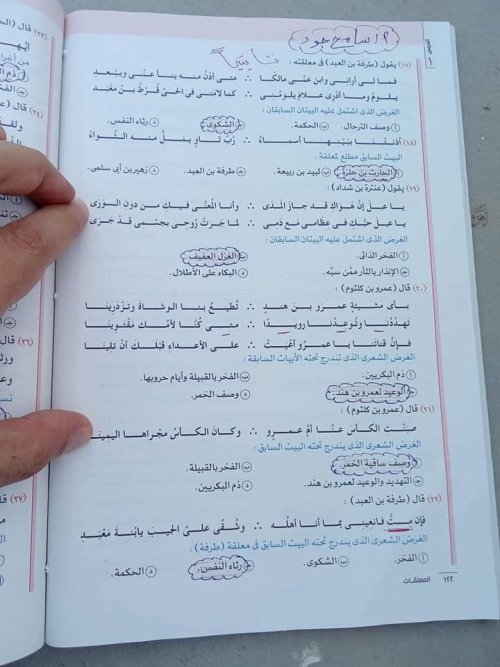 الدرس
١
١٩ سامح حمود
ثانياً
(١٧) يقول (طرفة بن العبد) في معلقته :
فما لى أرانى وابن عمى مالكًا ∴ متى أدْنُ منه ينأ عنى ويبعد
يلوم وما أدرى علام يلومنى ∴ كما لامنى فى الحىّ قُرْطُ بنُ مَعْبد
الغرض الذى اشتمل عليه البيتان السابقان :
أ وصف الترحال. ب الحكمة. ج الشكوى. د رثاء النفس.
(١٨) آذنَتْنَا بِبَيْنِهَا أسماءُ ∴ رُبَّ ثاوٍ يَمَلُّ منه الثَّوَاءُ
البيت السابق مطلع لمعلقة :
أ الحارث بن حلزة. ب لبيد بن ربيعة. ج طرفة بن العبد. د زهير بن أبى سلمى.
(١٩) يقول (عنترة بن شداد) :
يا عبلَ إنَّ هَوَاكِ قد جازَ المدى ∴ وأنا المُعَنَّى فيكِ من دون الوَرَى
يا عبلَ حبُّكِ فى عظامى مَعَ دَمِى ∴ لما جَرَتْ رُوحى بجسمى قَدْ جَرَى
الغرض الذى اشتمل عليه البيتان السابقان :
أ الفخر الذاتى. ب الغزل العفيف.
ج الإنذار بالثأر ممَّن سبَّه. د البكاء على الأطلال.
(٢٠) قال (عمرو بن كلثوم) :
بأى مشيئةٍ عمرو بن هندٍ ∴ تُطيعُ بنا الوشاةَ وتزدرينا
تهددُنا وتُوعِدُنا رويدًا ∴ متى كُنَّا لأُمِّك مَقْتوينا
فإنَّ قناتَنا يا عمرو أَعْيَتْ ∴ على الأعداءِ قبْلَكَ أنْ تلينا
الغرض الشعرى الذى تندرج تحته الأبيات السابقة :
أ ذم البكريين. ب الفخر بالقبيلة وأيام حروبها.
ج الوعيد لعمرو بن هند. د وصف الخمر.
(٢١) قال (عمرو بن كلثوم) :
صبَنْتِ الكأسَ عنَّا أمَّ عمرٍو ∴ وكان الكأسُ مجْراها اليمينا
الغرض الشعرى الذى يندرج تحته البيت السابق :
أ وصف ساقية الخمر. ب الفخر بالقبيلة.
ج التهديد والوعيد لعمرو بن هند. د ذم البكريين.
(٢٢) قال (طرفة بن العبد) :
فإن متُّ فانعينى بما أنا أهلُه ∴ وشُقِّى علىَّ الجيبَ يا ابنةَ مَعْبَد
الغرض الشعرى الذى يندرج تحته البيت السابق فى معلقة (طرفة) :
أ الفخر. ب الشكوى. ج رثاء النفس. د الحكمة.
١٢٢ المعلقات
(٢٣) قال (
أ ذم ال
(٢٤) قال (
ولقد
(٢٦)
(٢٧)